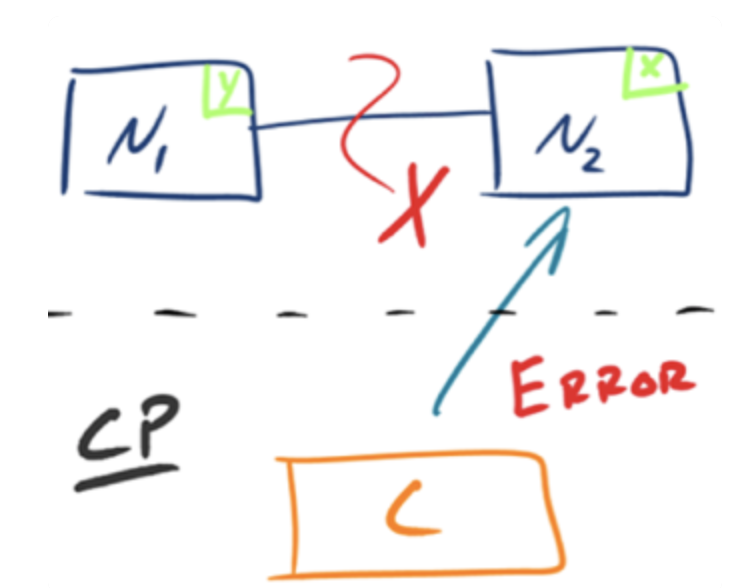 y
x
N1
N2
X
ERROR
CP
C